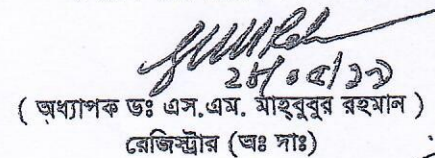 ( অধ্যাপক ডঃ এস.এম. মাহ্‌বুবুর রহমান )
রেজিস্ট্রার (অঃ দাঃ)